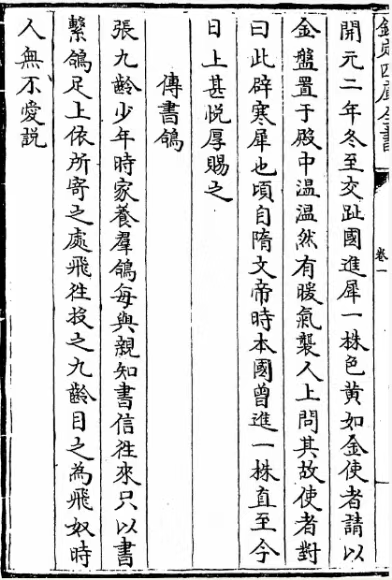 欽定四庫全書
卷一
開元二年冬至交趾國進犀一株色黄如金使者請以
金盤置于殿中温温然有暖氣襲人上問其故使者對
曰此辟寒犀也頃自隋文帝時本國曾進一株直至今
日上甚悦厚賜之
傳書鴿
張九齡少年時家養羣鴿每與親知書信徃來只以書
繫鴿足上依所寄之處飛徃投之九齡目之為飛奴時
人無不愛説